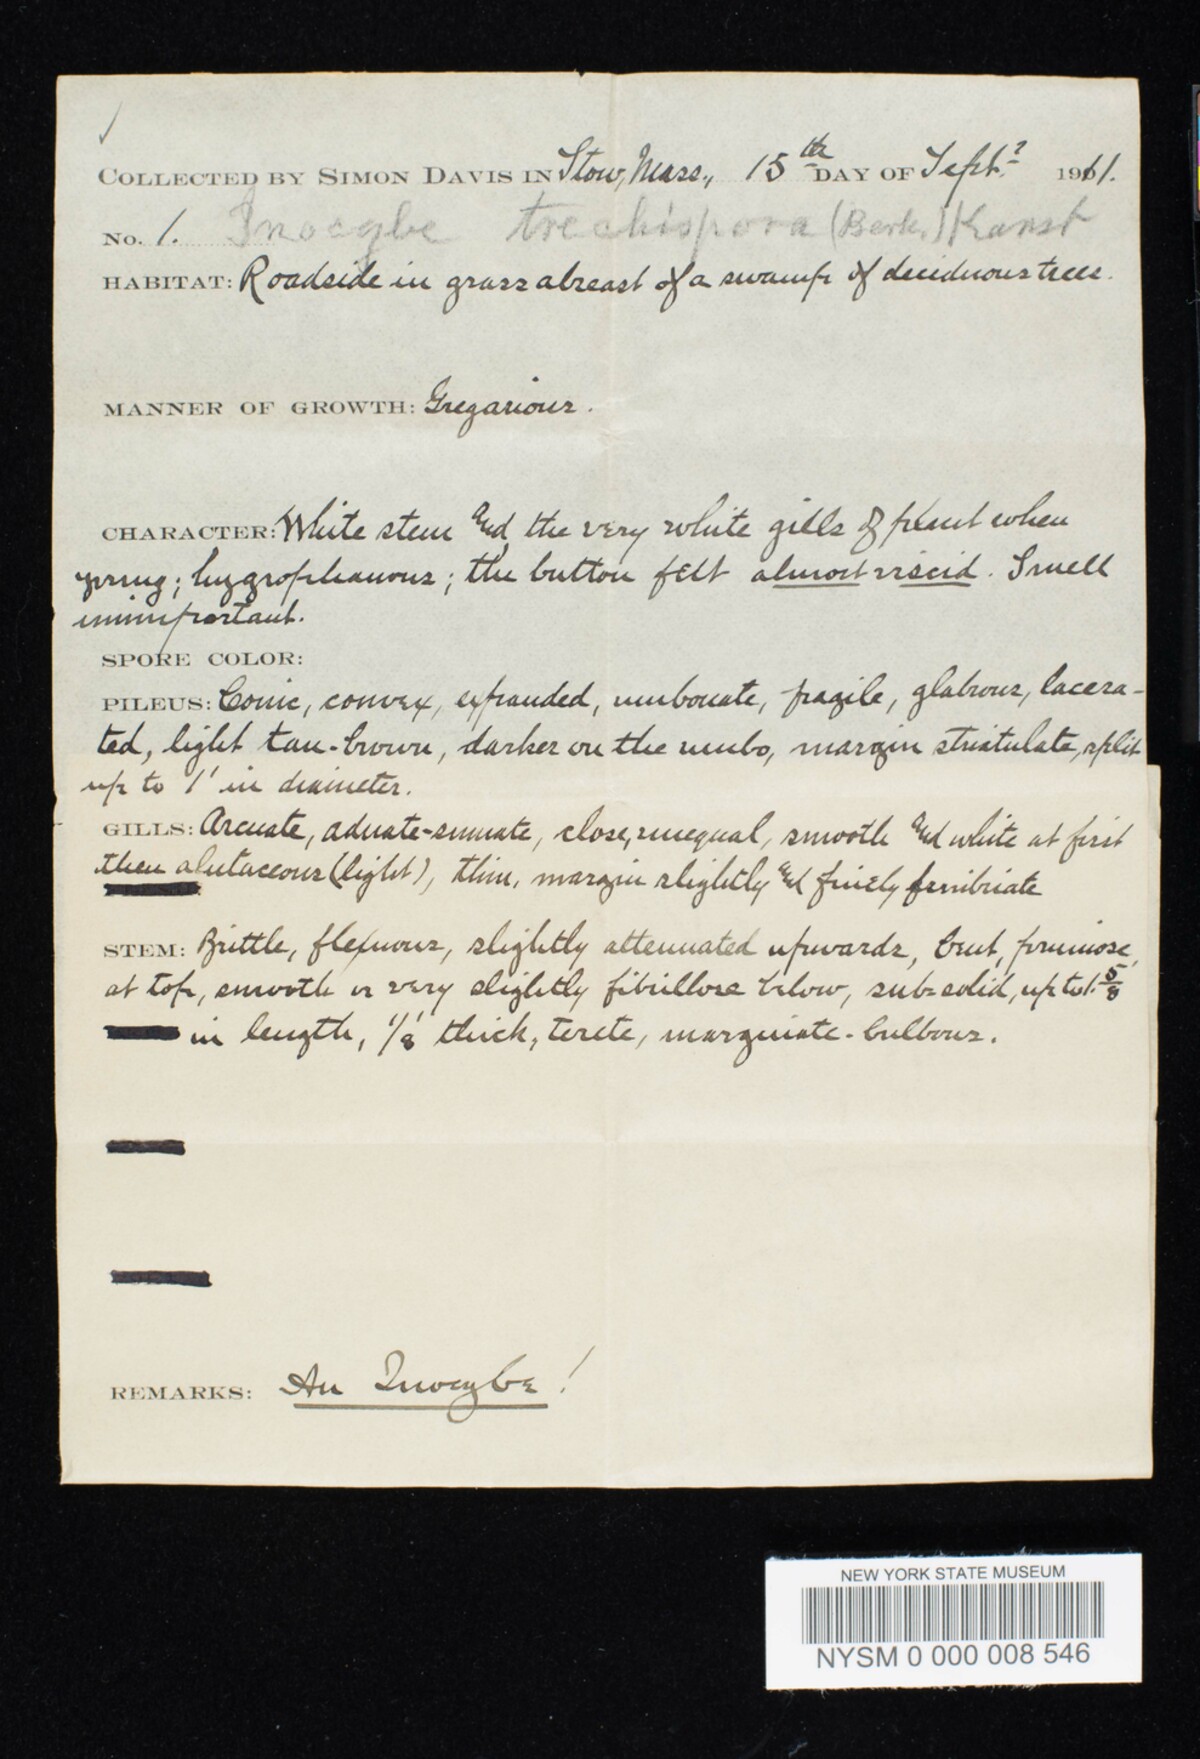 COLLECTED BY SIMON DAVIS IN Stow, Mass., 15th DAY OF Sept. 1911.
No. 1. Inocybe trechispora (Berk.) Karst
HABITAT: Roadside in grass abreast of a swamp of deciduous trees.
MANNER OF GROWTH: Gregarious.
CHARACTER: White stem and the very white gills of plant when
young; hygrophanous; the button felt almost viscid. Smell
unimportant.
SPORE COLOR:
PILEUS: Conic, convex, expanded, umbonate, fragile, glabrous, lacera-
ted, light tan-brown, darker on the umbo, margin striatulate, split
up to 1' in diameter.
GILLS: Arcuate, adnate-sinuate, close, unequal, smooth and white at first
then alutaceous (light), thin, margin slightly and finely fimbriate
STEM: Brittle, flexuous, slightly attenuated upwards, bent, pruinose,
at top, smooth or very slightly fibrillose below, sub-solid, up to 1 5/8
in length, 1/8' thick, terete, marginate-bulbous.
REMARKS: An Inocybe!
NEW YORK STATE MUSEUM
NYSM 0 000 008 546